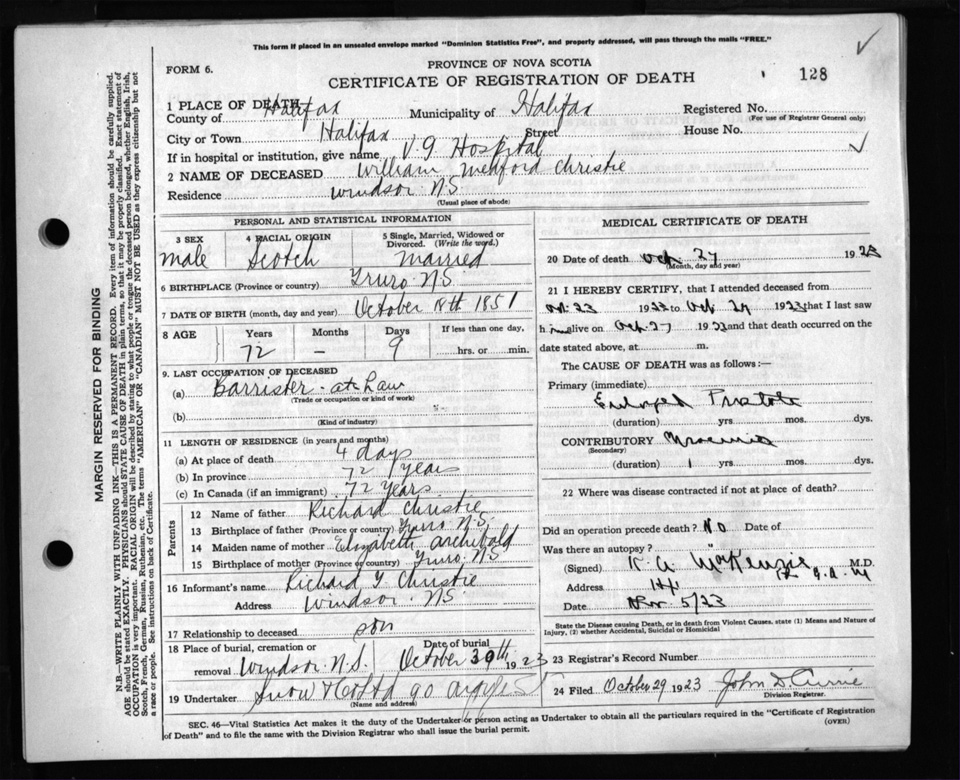 This form if placed in an unsealed envelope marked "Dominion Statistics Free", and properly addressed, will pass through the mails "FREE."
FORM 6.
PROVINCE OF NOVA SCOTIA
CERTIFICATE OF REGISTRATION OF DEATH
128
1 PLACE OF DEATH
County of Halifax Municipality of Halifax Registered No.
(For use of Registrar General only)
City or Town Halifax Street House No.
If in hospital or institution, give name V.G. Hospital
2 NAME OF DECEASED William Christie
Residence Windsor NS
(Usual place of abode)
PERSONAL AND STATISTICAL INFORMATION
3 SEX 4 RACIAL ORIGIN 5 Single, Married, Widowed or Divorced. (Write the word.)
Male Scotch Married
6 BIRTHPLACE (Province or country) Truro NS.
7 DATE OF BIRTH (month, day and year) October 18th 1851
8 AGE Years Months Days If less than one day,
72 — 9 hrs. or min.
9. LAST OCCUPATION OF DECEASED
(a) Barrister-at-Law
(Trade or occupation or kind of work)
(b)
(Kind of industry)
11 LENGTH OF RESIDENCE (in years and months)
(a) At place of death 4 days
(b) In province 72 years
(c) In Canada (if an immigrant) 72 Years
Parents
12 Name of father Richard Christie
13 Birthplace of father (Province or country) Truro N.S.
14 Maiden name of mother Elizabeth Archibald
15 Birthplace of mother (Province or country) Truro, NS
16 Informant's name Richard Y Christie
Address Windsor NS.
17 Relationship to deceased son
18 Place of burial, cremation or removal Windsor N.S. Date of burial October 29th 1923
19 Undertaker Snow 90 Argyle St
(Name and address)
MEDICAL CERTIFICATE OF DEATH
20 Date of death Oct 27 1923
(Month, day and year)
21 I HEREBY CERTIFY, that I attended deceased from
Oct. 23 1923 to Oct 27 1923 that I last saw
him alive on Oct. 27 1923 and that death occurred on the
date stated above, at m.
The CAUSE OF DEATH was as follows:—
Primary (immediate)
Enlarged Prostate
(duration) yrs. mos. dys.
CONTRIBUTORY Uraemia
(Secondary)
(duration) yrs. mos. dys.
22 Where was disease contracted if not at place of death?
Did an operation precede death? No Date of
Was there an autopsy?
(Signed) K. A. McKenzie M.D.
Address
Date Nov. 5/23
State the Disease causing Death, or in death from Violent Causes. state (1) Means and Nature of Injury, (2) whether Accidental, Suicidal or Homicidal
23 Registrar's Record Number
24 Filed October 29 1923 John D. Currie
Division Registrar.
SEC. 46—Vital Statistics Act makes it the duty of the Undertaker or person acting as Undertaker to obtain all the particulars required in the "Certificate of Registration
of Death" and to file the same with the Division Registrar who shall issue the burial permit.
(OVER)
MARGIN RESERVED FOR BINDING
N.B.—WRITE PLAINLY WITH UNFADING INK—THIS IS A PERMANENT RECORD. Every item of information should be carefully supplied.
AGE should be stated EXACTLY. PHYSICIANS should STATE CAUSE OF DEATH in plain terms, so that it may be properly classified. Exact statement of
OCCUPATION is very important. RACIAL ORIGIN will be described by stating to what people or tongue the deceased person belonged, whether English, Irish,
Scotch, French, German, Russian, Ruthenian, etc. The terms "AMERICAN" or "CANADIAN" MUST NOT BE USED as they express citizenship but not
a race or people. See instructions on back of Certificate.